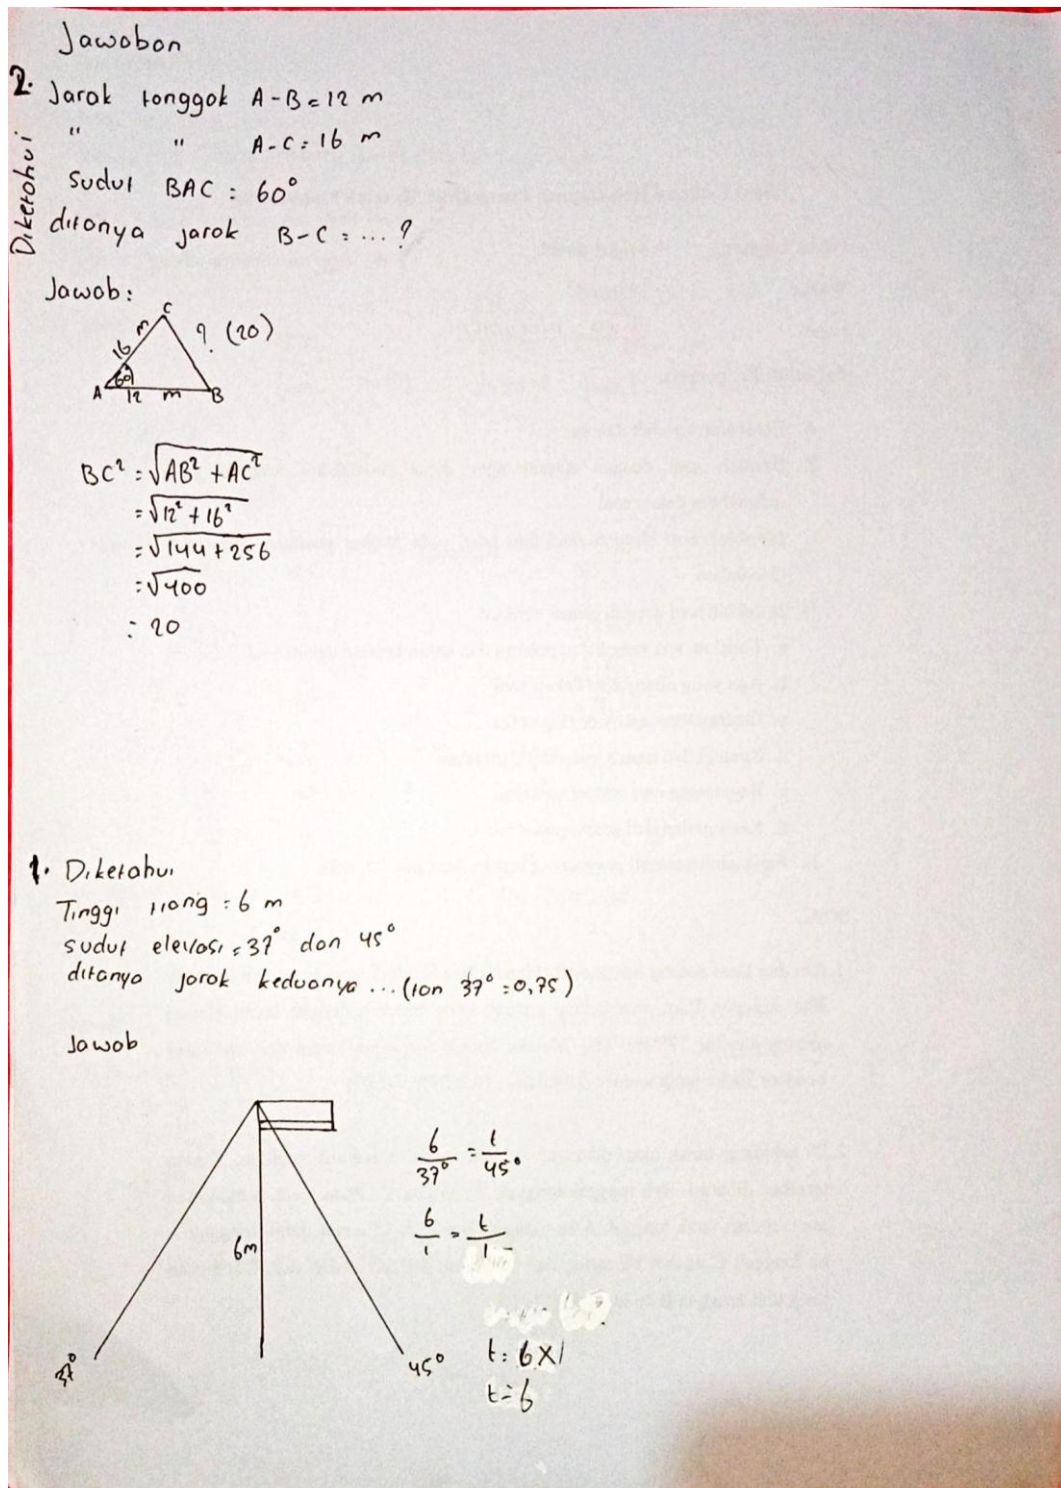 Jawaban
2. Diketahui
Jarak tonggak A-B = 12 m
" " A-C = 16 m
Sudut BAC = 60°
ditanya jarak B-C = ... ?
Jawab:
C
16 m ? (20)
60°
A 12 m B
BC² = √AB² + AC²
= √12² + 16²
= √144 + 256
= √400
= 20
1. Diketahui
Tinggi tiang = 6 m
sudut elevasi = 37° dan 45°
ditanya jarak keduanya ... (tan 37° = 0,75)
Jawab
6/37° = t/45°
6/1 = t/1
6m
37° 45°
t = 6 x 1
t = 6